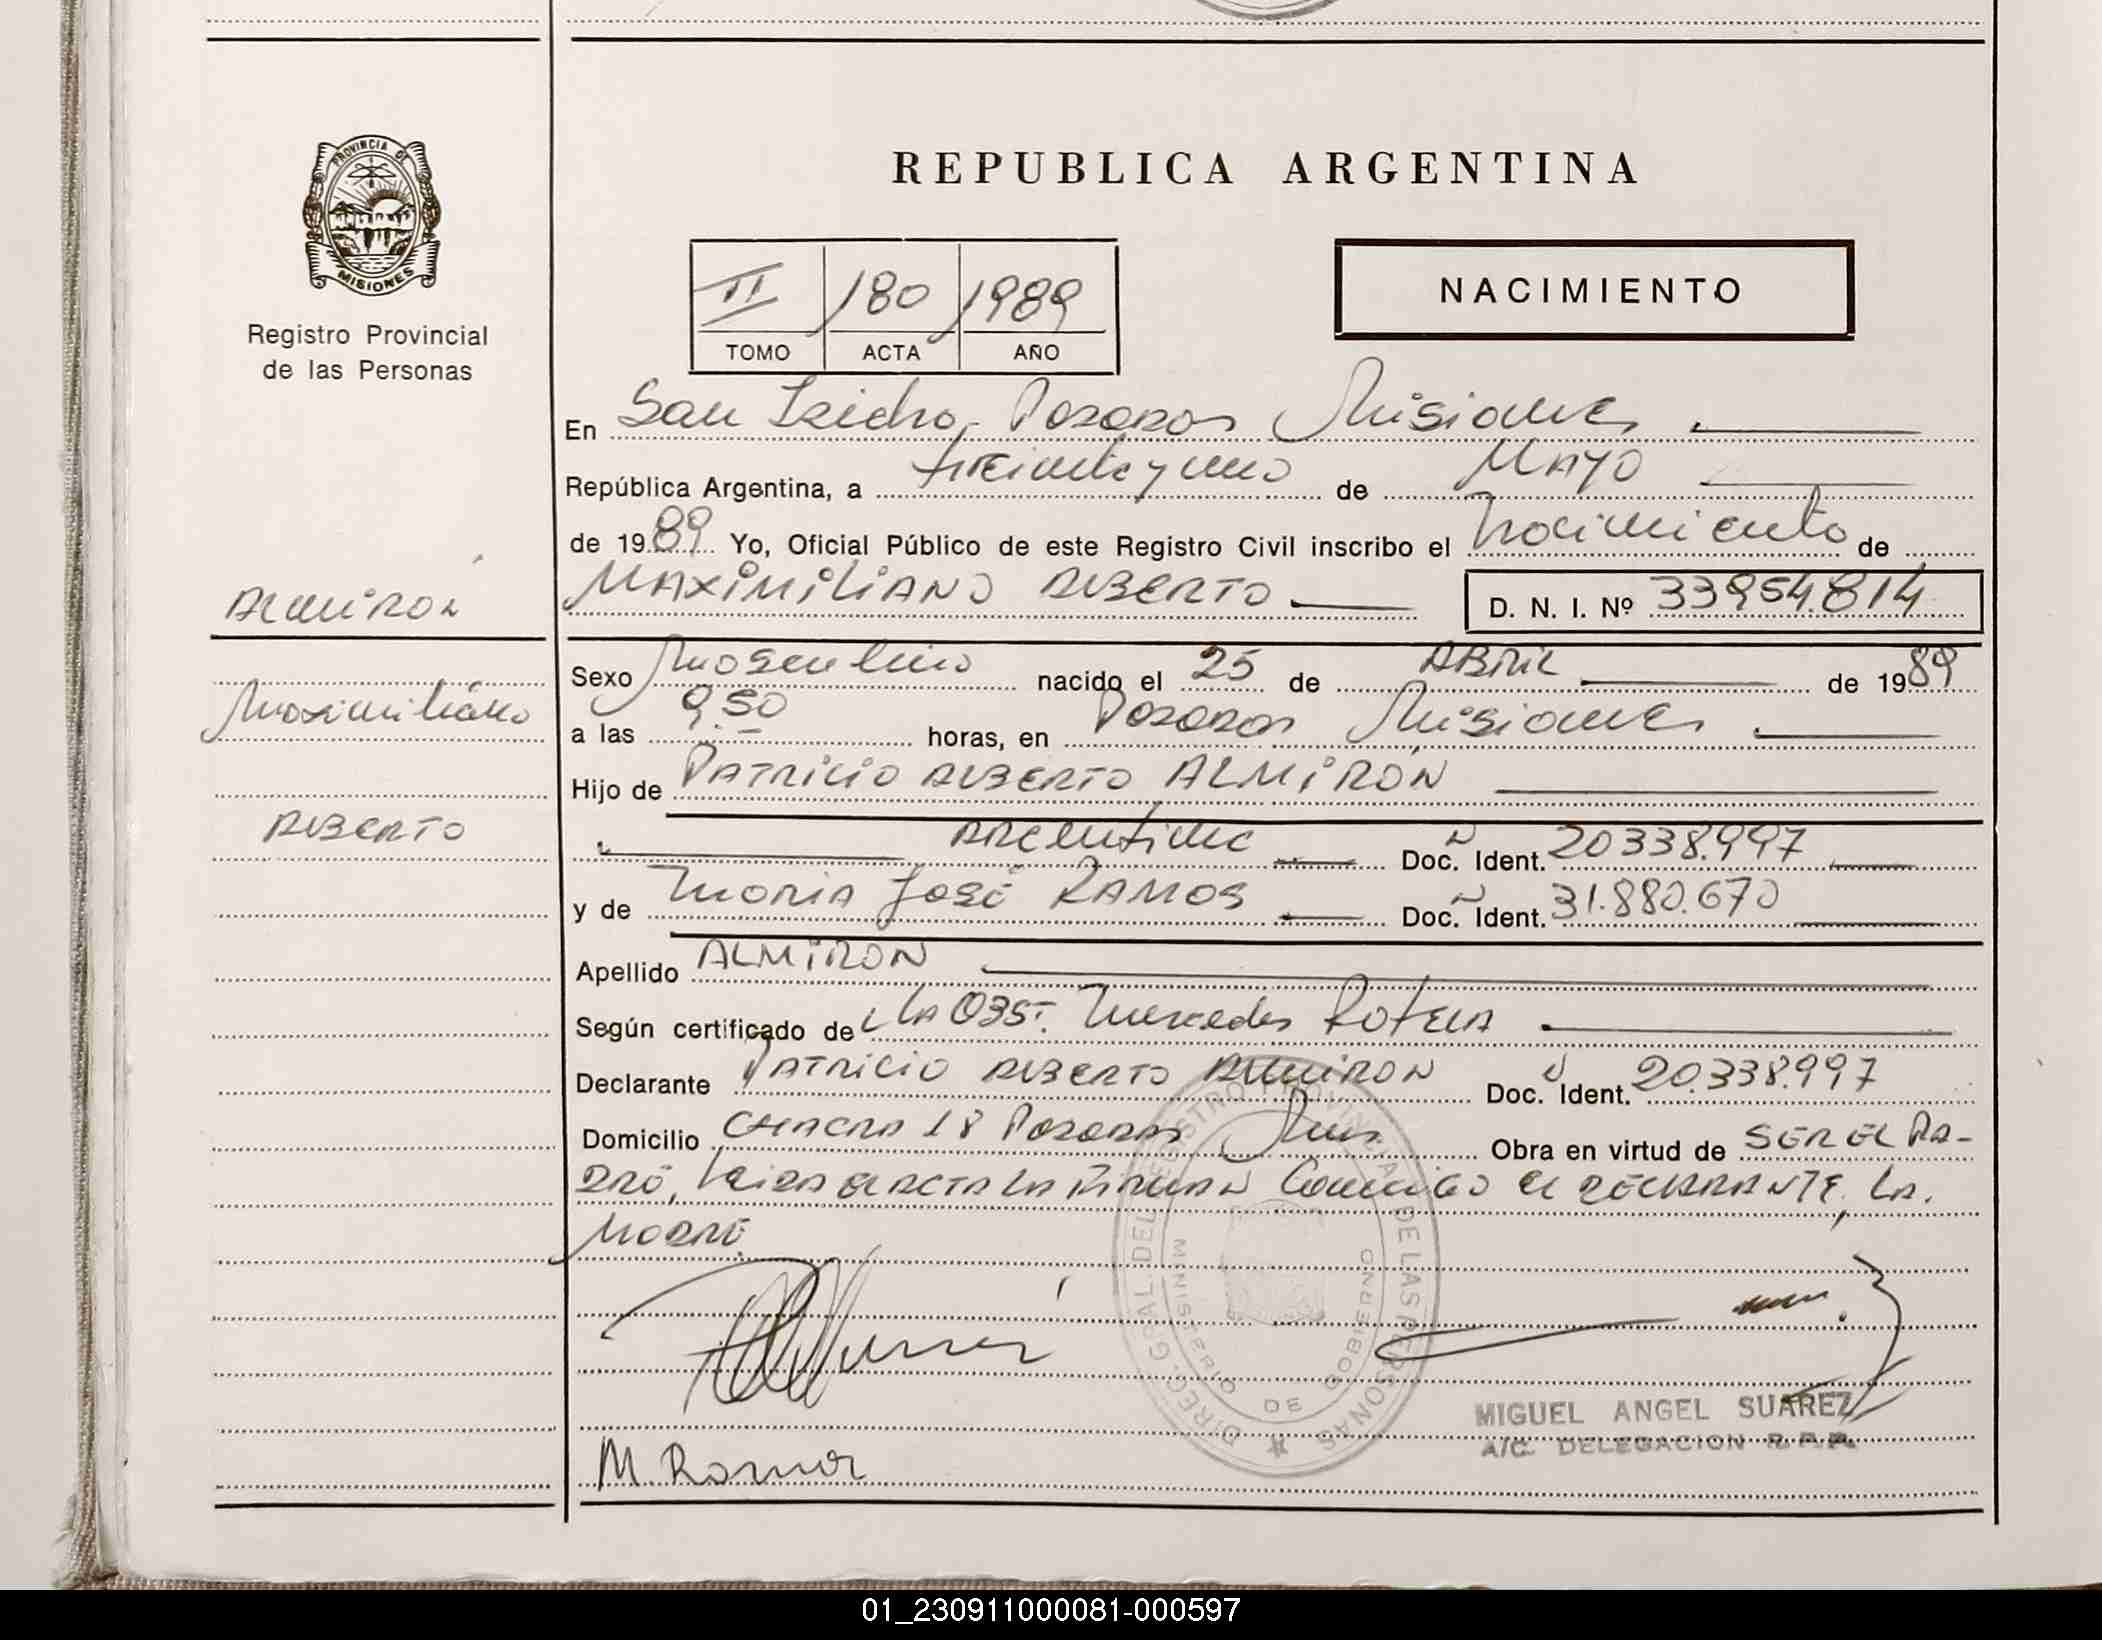 PROVINCIA DE
MISIONES
Registro Provincial
de las Personas
REPUBLICA ARGENTINA
II 180 1989
TOMO ACTA AÑO
NACIMIENTO
En San Isidro Posadas Misiones
República Argentina, a treinta y uno de MAYO
de 1989 Yo, Oficial Público de este Registro Civil inscribo el Nacimiento de
MAXIMILIANO ALBERTO D. N. I. Nº 33954.814
ALMIRON
Maximiliano
ALBERTO
Sexo Masculino nacido el 25 de ABRIL de 1989
a las 9,50 horas, en Posadas Misiones
Hijo de PATRICIO ALBERTO ALMIRÓN
ARGENTINO Doc. Ident. 20338.997
y de MARIA José RAMOS Doc. Ident. 31.880.670
Apellido ALMIRON
Según certificado de LA OBST. Mercedes ROTELA
Declarante PATRICIO ALBERTO ALMIRON Doc. Ident. 20.338.997
Domicilio CHACRA 18 Posadas Mnes. Obra en virtud de SER EL PA-
DRE, Leida EL ACTA LA FIRMAN Conmigo el DECLARANTE, LA
MADRE
DIREC. GRAL DEL REGISTRO PROVINCIAL DE LAS PERSONAS
MINISTERIO DE GOBIERNO
MIGUEL ANGEL SUAREZ
A/C. DELEGACION R. P. P.
M. Ramos
01_230911000081-000597